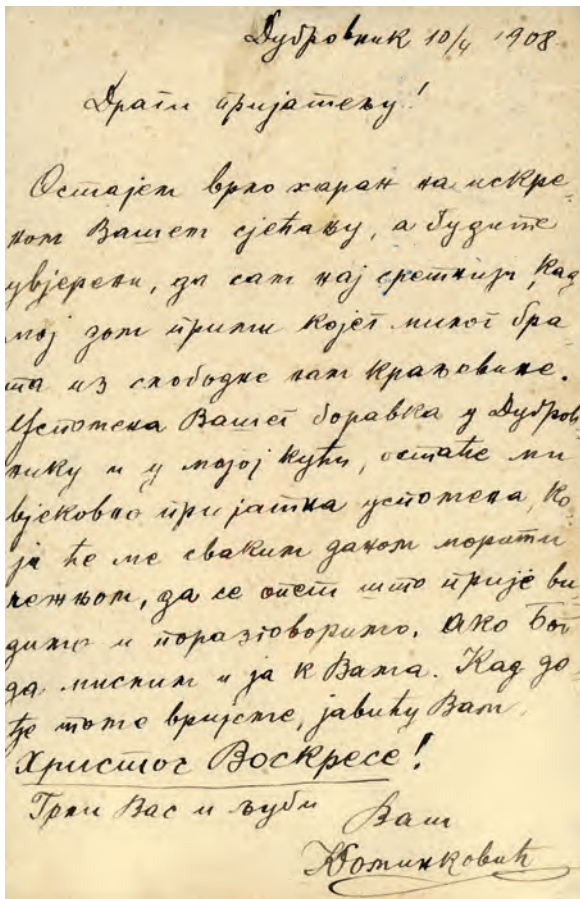 Дубровник 10/4 1908.
Драги пријатељу!
Остајем врло харан на искре-
ном Вашем сјећању, а будите
увјерени, да сам најсретнији, кад
мој дом прими којег милог бра
та из слободне нам краљевине.
Успомена Вашег боравка у Дубров
нику и у мојој кући, остаће ми
вјековно пријатна успомена, ко
ја ће ме сваким даном морити
чежњом, да се опет што прије ви
димо и поразговоримо. Ако Бог
да мислим и ја к Вама. Кад до-
ђе томе вријеме, јавићу Вам.
Христос Воскресе!
Грли Вас и љуби
Ваш